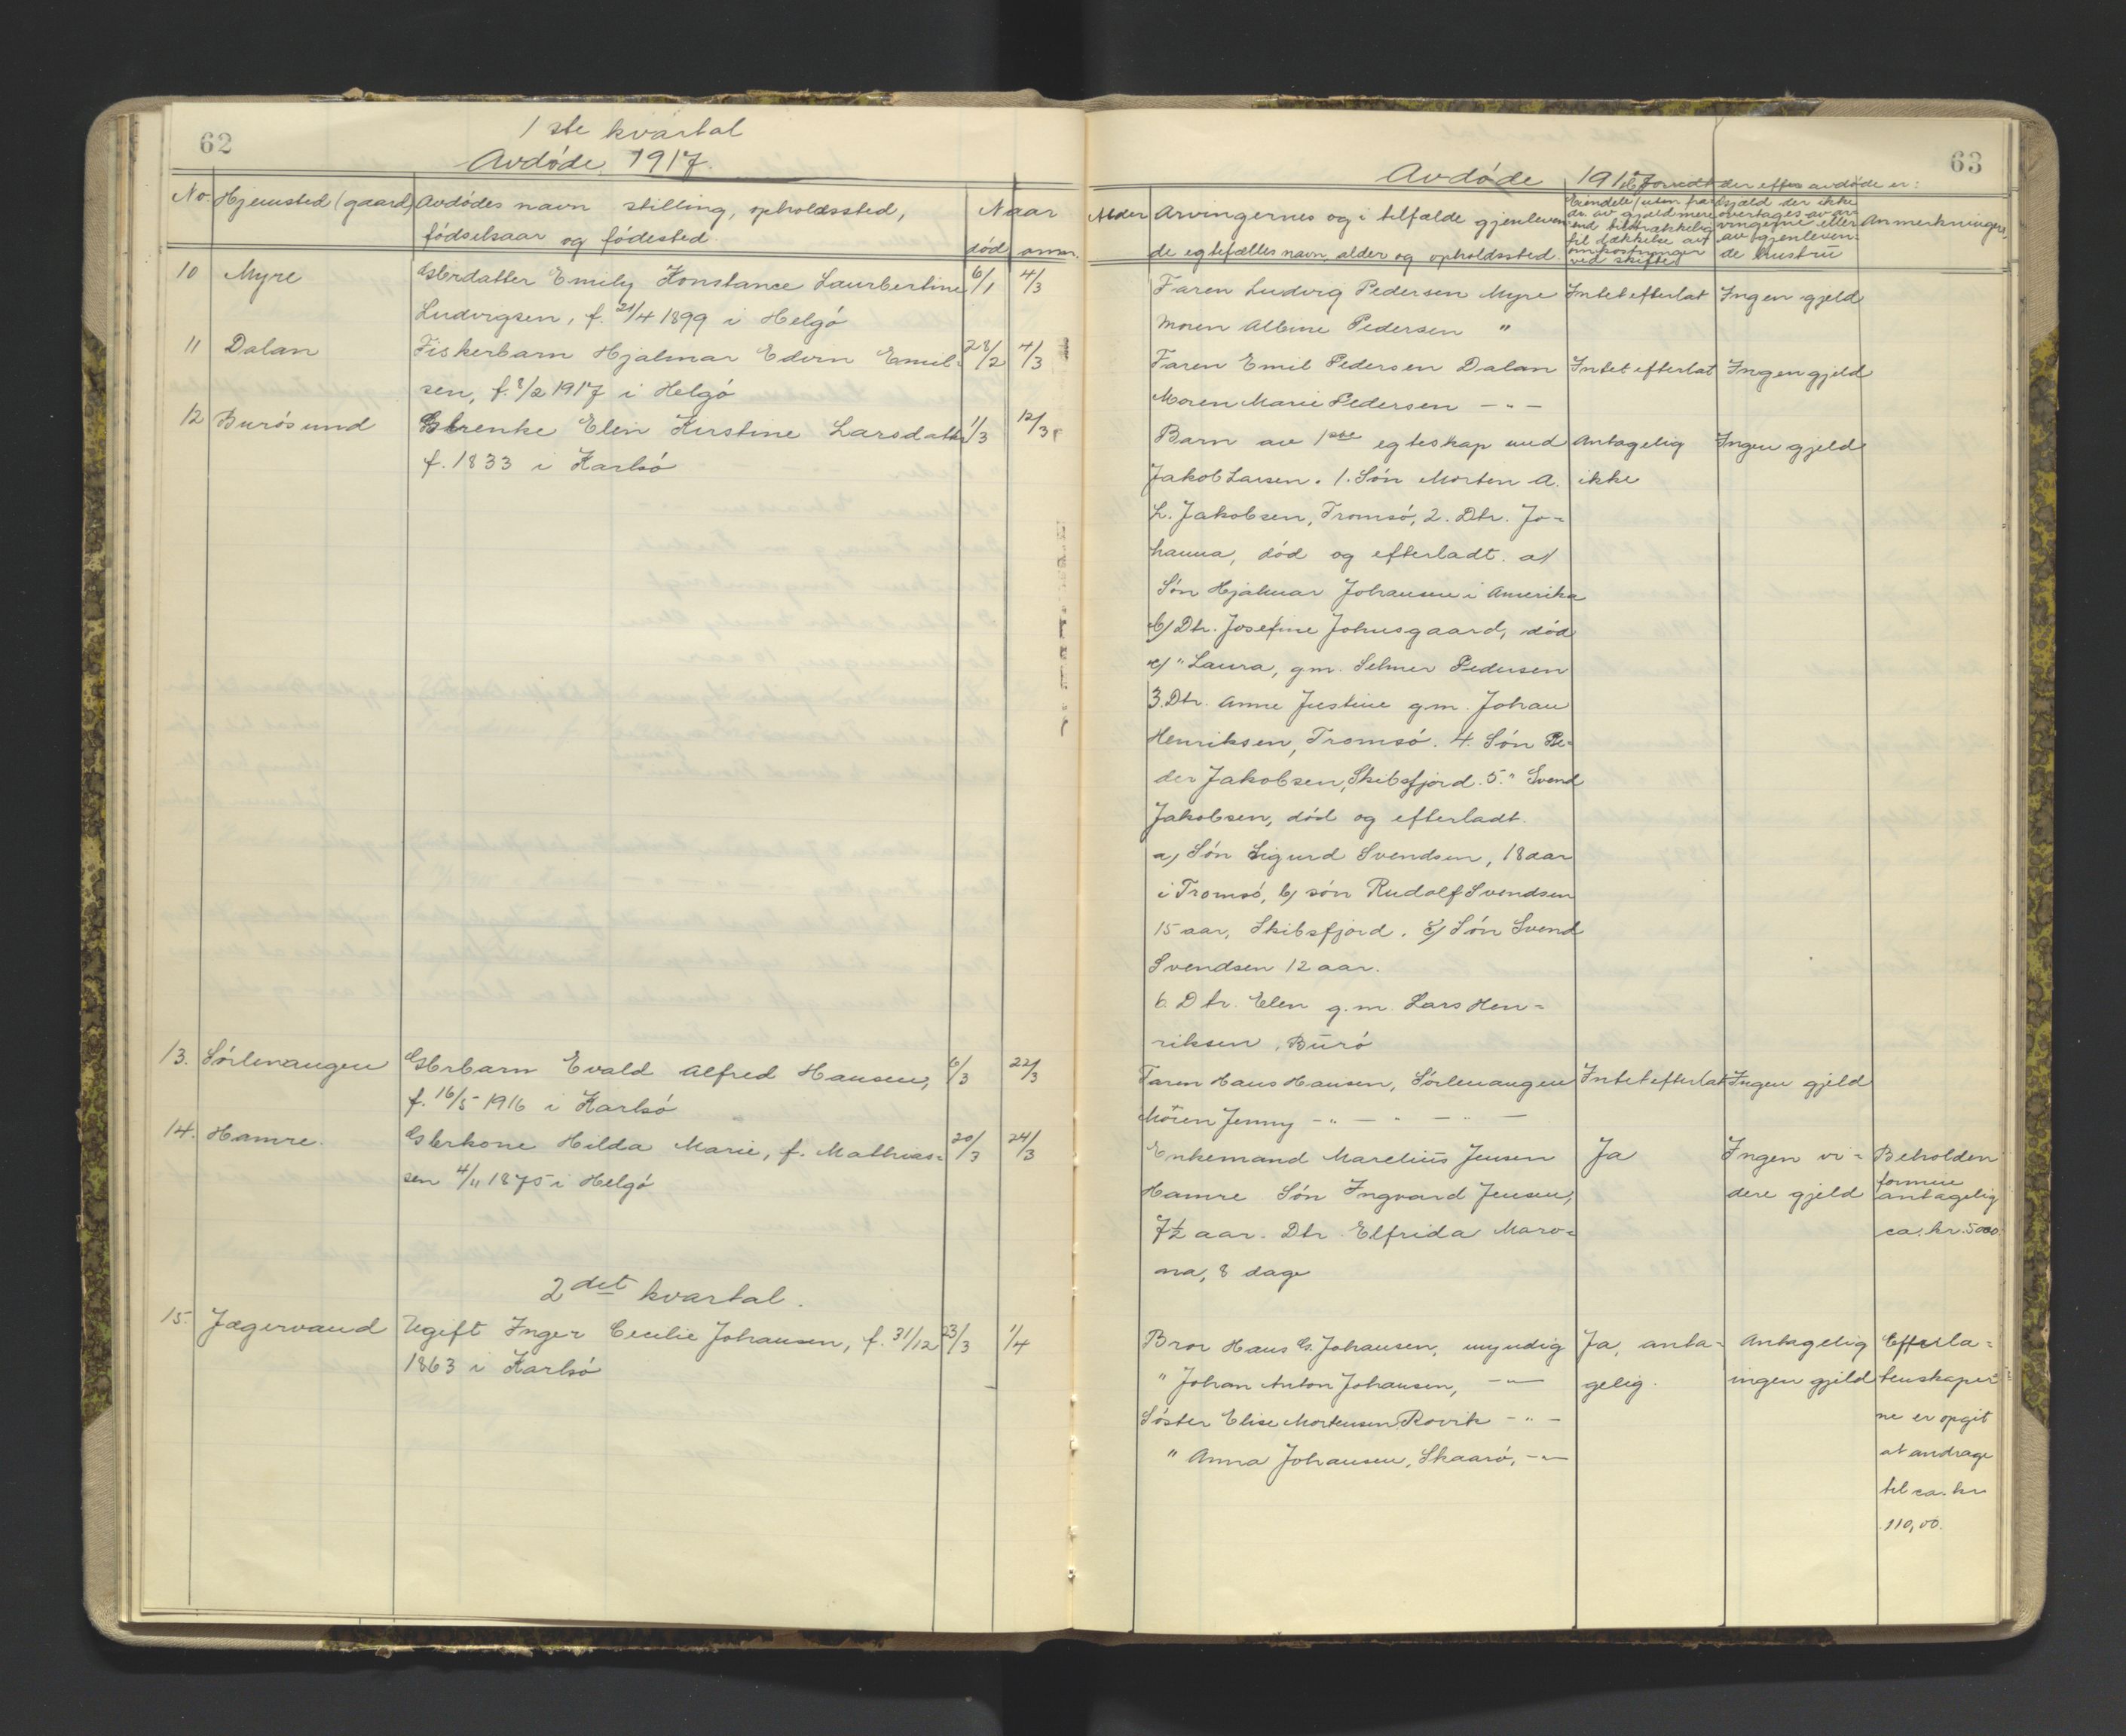 62
1 ste kvartal
Avdøde 1917.
No. Hjemsted (gaard) Avdødes navn stilling, opholdssted, fødselsaar og fødested. Naar død anm.
10 Myre Gbrdatter Emily Konstance Laurbertine 6/1 4/3
Ludvigsen, f. 21/4 1899 i Helgø
11 Dalan Fiskerbarn Hjalmar Edvin Emil- 28/2 4/3
sen, f. 8/2 1917 i Helgø
12 Burøsund Gbrenke Elen Kirstine Larsdatter 1/3 12/3
f. 1833 i Karlsø
13. Sørlenangen Gbrbarn Evald Alfred Hansen, 6/3 22/3
f. 16/5 1916 i Karlsø
14. Hamre. Gbrkone Hilda Marie, f. Mathias- 20/3 24/3
sen 4/11 1875 i Helgø
2det kvartal.
15. Jægervand Ugift Inger Cecilie Johansen, f. 31/12 23/3 1/4
1863 i Karlsø
63
Avdøde 1917
Alder Arvingernes og i tilfælde gjenleven-
de egtefælles navn, alder og opholdssted.
der efter avdøde er:
Eiendele (uten fra-
dr. av gjæld mere
end tilstrækkelig
til dækkelse av
omkostninger
ved skifte)
Gjæld der ikke
overtages av ar-
vingerne eller
av gjenleven-
de hustru
Anmerkninger.
Faren Ludvig Pedersen Myre Intet efterlat Ingen gjeld
Moren Albine Pedersen "
Faren Emil Pedersen Dalan Intet efterlat Ingen gjeld
Moren Marie Pedersen - " -
Barn av 1ste egteskap med Antagelig Ingen gjeld
Jakob Larsen. 1. Søn Morten A. ikke
L. Jakobsen, Tromsø, 2. Dtr. Jo-
hanna, død og efterladt. a/
Søn Hjalmar Johansen i Amerika
b/ Dtr. Josefine Johnsgaard, død
c/ " Laura, gm. Selmer Pedersen
3. Dtr. Anne Justine gm. Johan
Henriksen, Tromsø. 4. Søn Pe-
der Jakobsen, Skibsfjord. 5. " Svend
Jakobsen, død og efterladt.
a/ Søn Sigurd Svendsen, 18 aar
i Tromsø, b/ søn Rudolf Svendsen
15 aar, Skibsfjord. c/ Søn Svend
Svendsen 12 aar.
6. Dtr. Elen g.m. Lars Hen-
riksen, Burø
Faren Hans Hansen, Sørlenangen Intet efterlat Ingen gjeld
Moren Jenny - " - " - " -
Enkemand Marelius Jensen Ja Ingen vi- Beholden
Hamre Søn Ingvard Jensen, dere gjeld formue antagelig
7½ aar. Dtr. Elfrida Maro- ca. kr. 5000.
na, 8 dage
Bror Hans G. Johansen, myndig Ja, anta- Antagelig Efterla-
" Johan Anton Johansen, - " - gelig. ingen gjeld tenskaper-
Søster Elise Mortensen Rovik - " - ne er opgit
" Anna Johansen, Skaarø, - " - at andrage
til ca. kr
110,00.